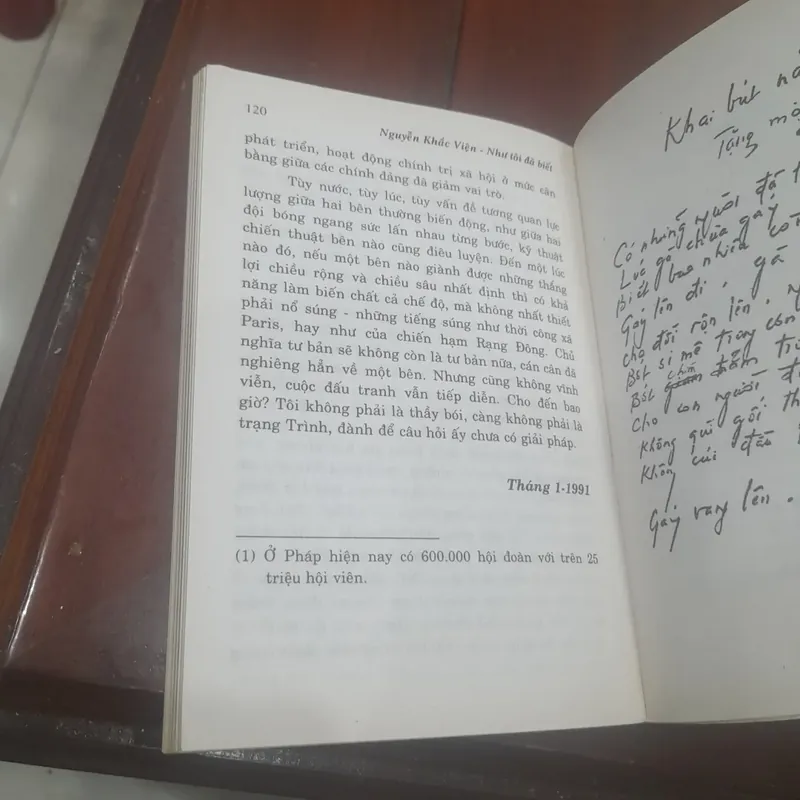 120
Nguyễn Khắc Viện - Như tôi đã biết
phát triển, hoạt động chính trị xã hội ở mức cân
bằng giữa các chính đảng đã giảm vai trò.
Tùy nước, tùy lúc, tùy vấn đề tương quan lực
lượng giữa hai bên thường biến động, như giữa hai
đội bóng ngang sức lấn nhau từng bước, kỹ thuật
chiến thuật bên nào cũng điêu luyện. Đến một lúc
nào đó, nếu một bên nào giành được những thắng
lợi chiều rộng và chiều sâu nhất định thì có khả
năng làm biến chất cả chế độ, mà không nhất thiết
phải nổ súng - những tiếng súng như thời công xã
Paris, hay như của chiến hạm Rạng Đông. Chủ
nghĩa tư bản sẽ không còn là tư bản nữa, cán cân đã
nghiêng hẳn về một bên. Nhưng cũng không vĩnh
viễn, cuộc đấu tranh vẫn tiếp diễn. Cho đến bao
giờ? Tôi không phải là thầy bói, càng không phải là
trạng Trình, đành để câu hỏi ấy chưa có giải pháp.
Tháng 1-1991
(1) Ở Pháp hiện nay có 600.000 hội đoàn với trên 25
triệu hội viên.
Khai bút
Tặng
Có những người đã
gà chữa gáy
Biết bao nhiêu
Gáy lên đi, gà
cho đời rộn lên,
Bớt si mê trong
Bớt
Cho con người
Không quì gối
Không cúi đầu
Gáy vang lên.